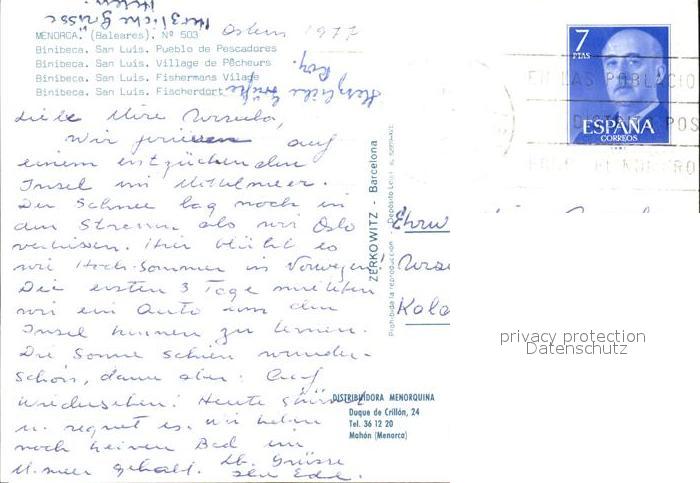 Herzliche Grüsse
Helen
Ostern 1977
MENORCA. (Baleares). Nº 503
Binibeca. San Luis. Pueblo de Pescadores
Binibeca. San Luis. Village de Pêcheurs
Binibeca. San Luis. Fishermans Village
Binibeca. San Luis. Fischerdorf
Herzliche Grüße
Liebe Ursula,
Wir auf
einem entzückenden
Insel im Mittelmeer.
Der Schnee lag noch in
den Strassen als wir Oslo
verliessen. Hier blüht es
wie Hoch-Sommer in Norwegen!
Die ersten 3 Tage mieteten
wir ein Auto um den
Insel kennen zu lernen.
Die Sonne schien wunder-
schön, dann aber: Auf
Wiedersehen! Heute stürmt
u. regnet es. Wir haben
noch keinen Bad im
M.meer gehabt. Lb. Grüsse
ZERKOWITZ - Barcelona
Prohibida la reproducción - Depósito Legal
7
PTAS
ESPAÑA
CORREOS
EN LAS POBLACIO
DISTRITO POS
NUMERO
Frau
Kala
DISTRIBUIDORA MENORQUINA
Duque de Crillón, 24
Tel. 36 12 20
Mahón (Menorca)
privacy protection
Datenschutz